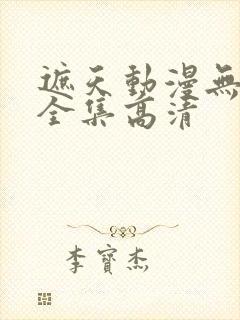 遮天動漫無
全集高清
李寶杰